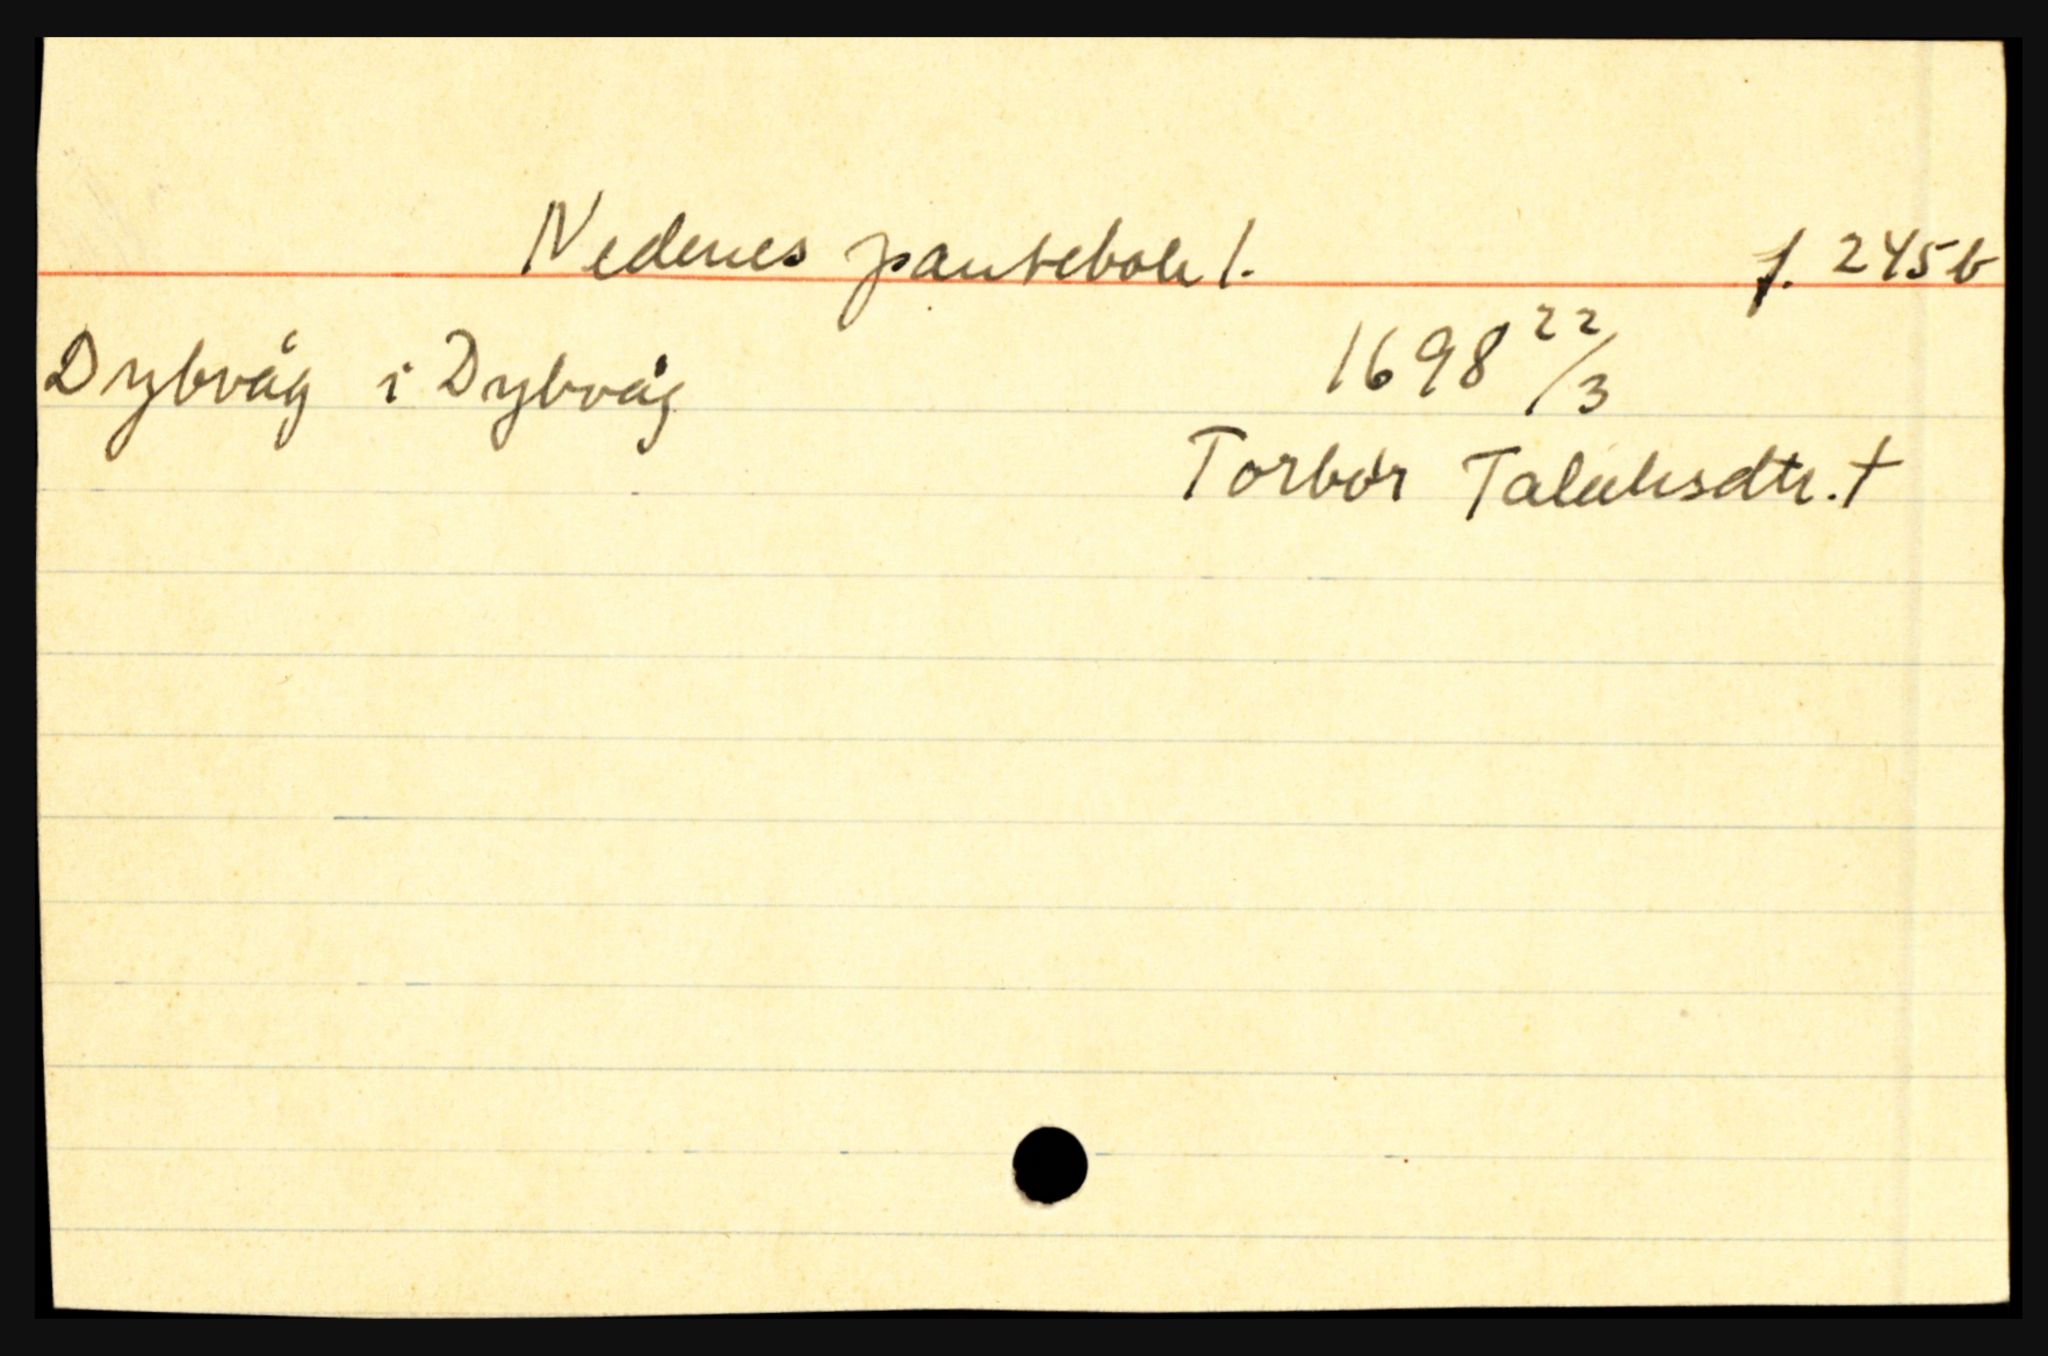 Nedenes pantebok 1. f. 245b
Dybvåg i Dybvåg 1698 22/3
Torbor Talaksdtr. †